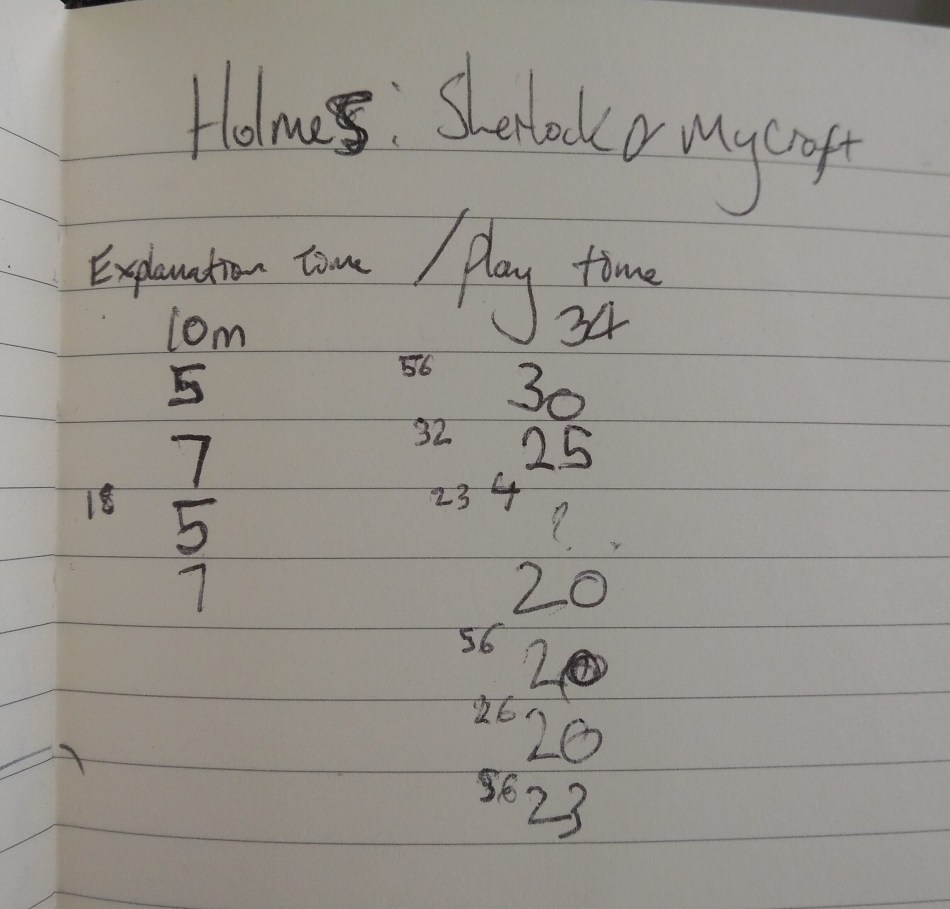 Holmes: Sherlock & Mycroft
Explanation time / play time
10m 34
5 56 30
7 32 25
18 5 23 4 ?
7 20
56 20
26 20
56 23